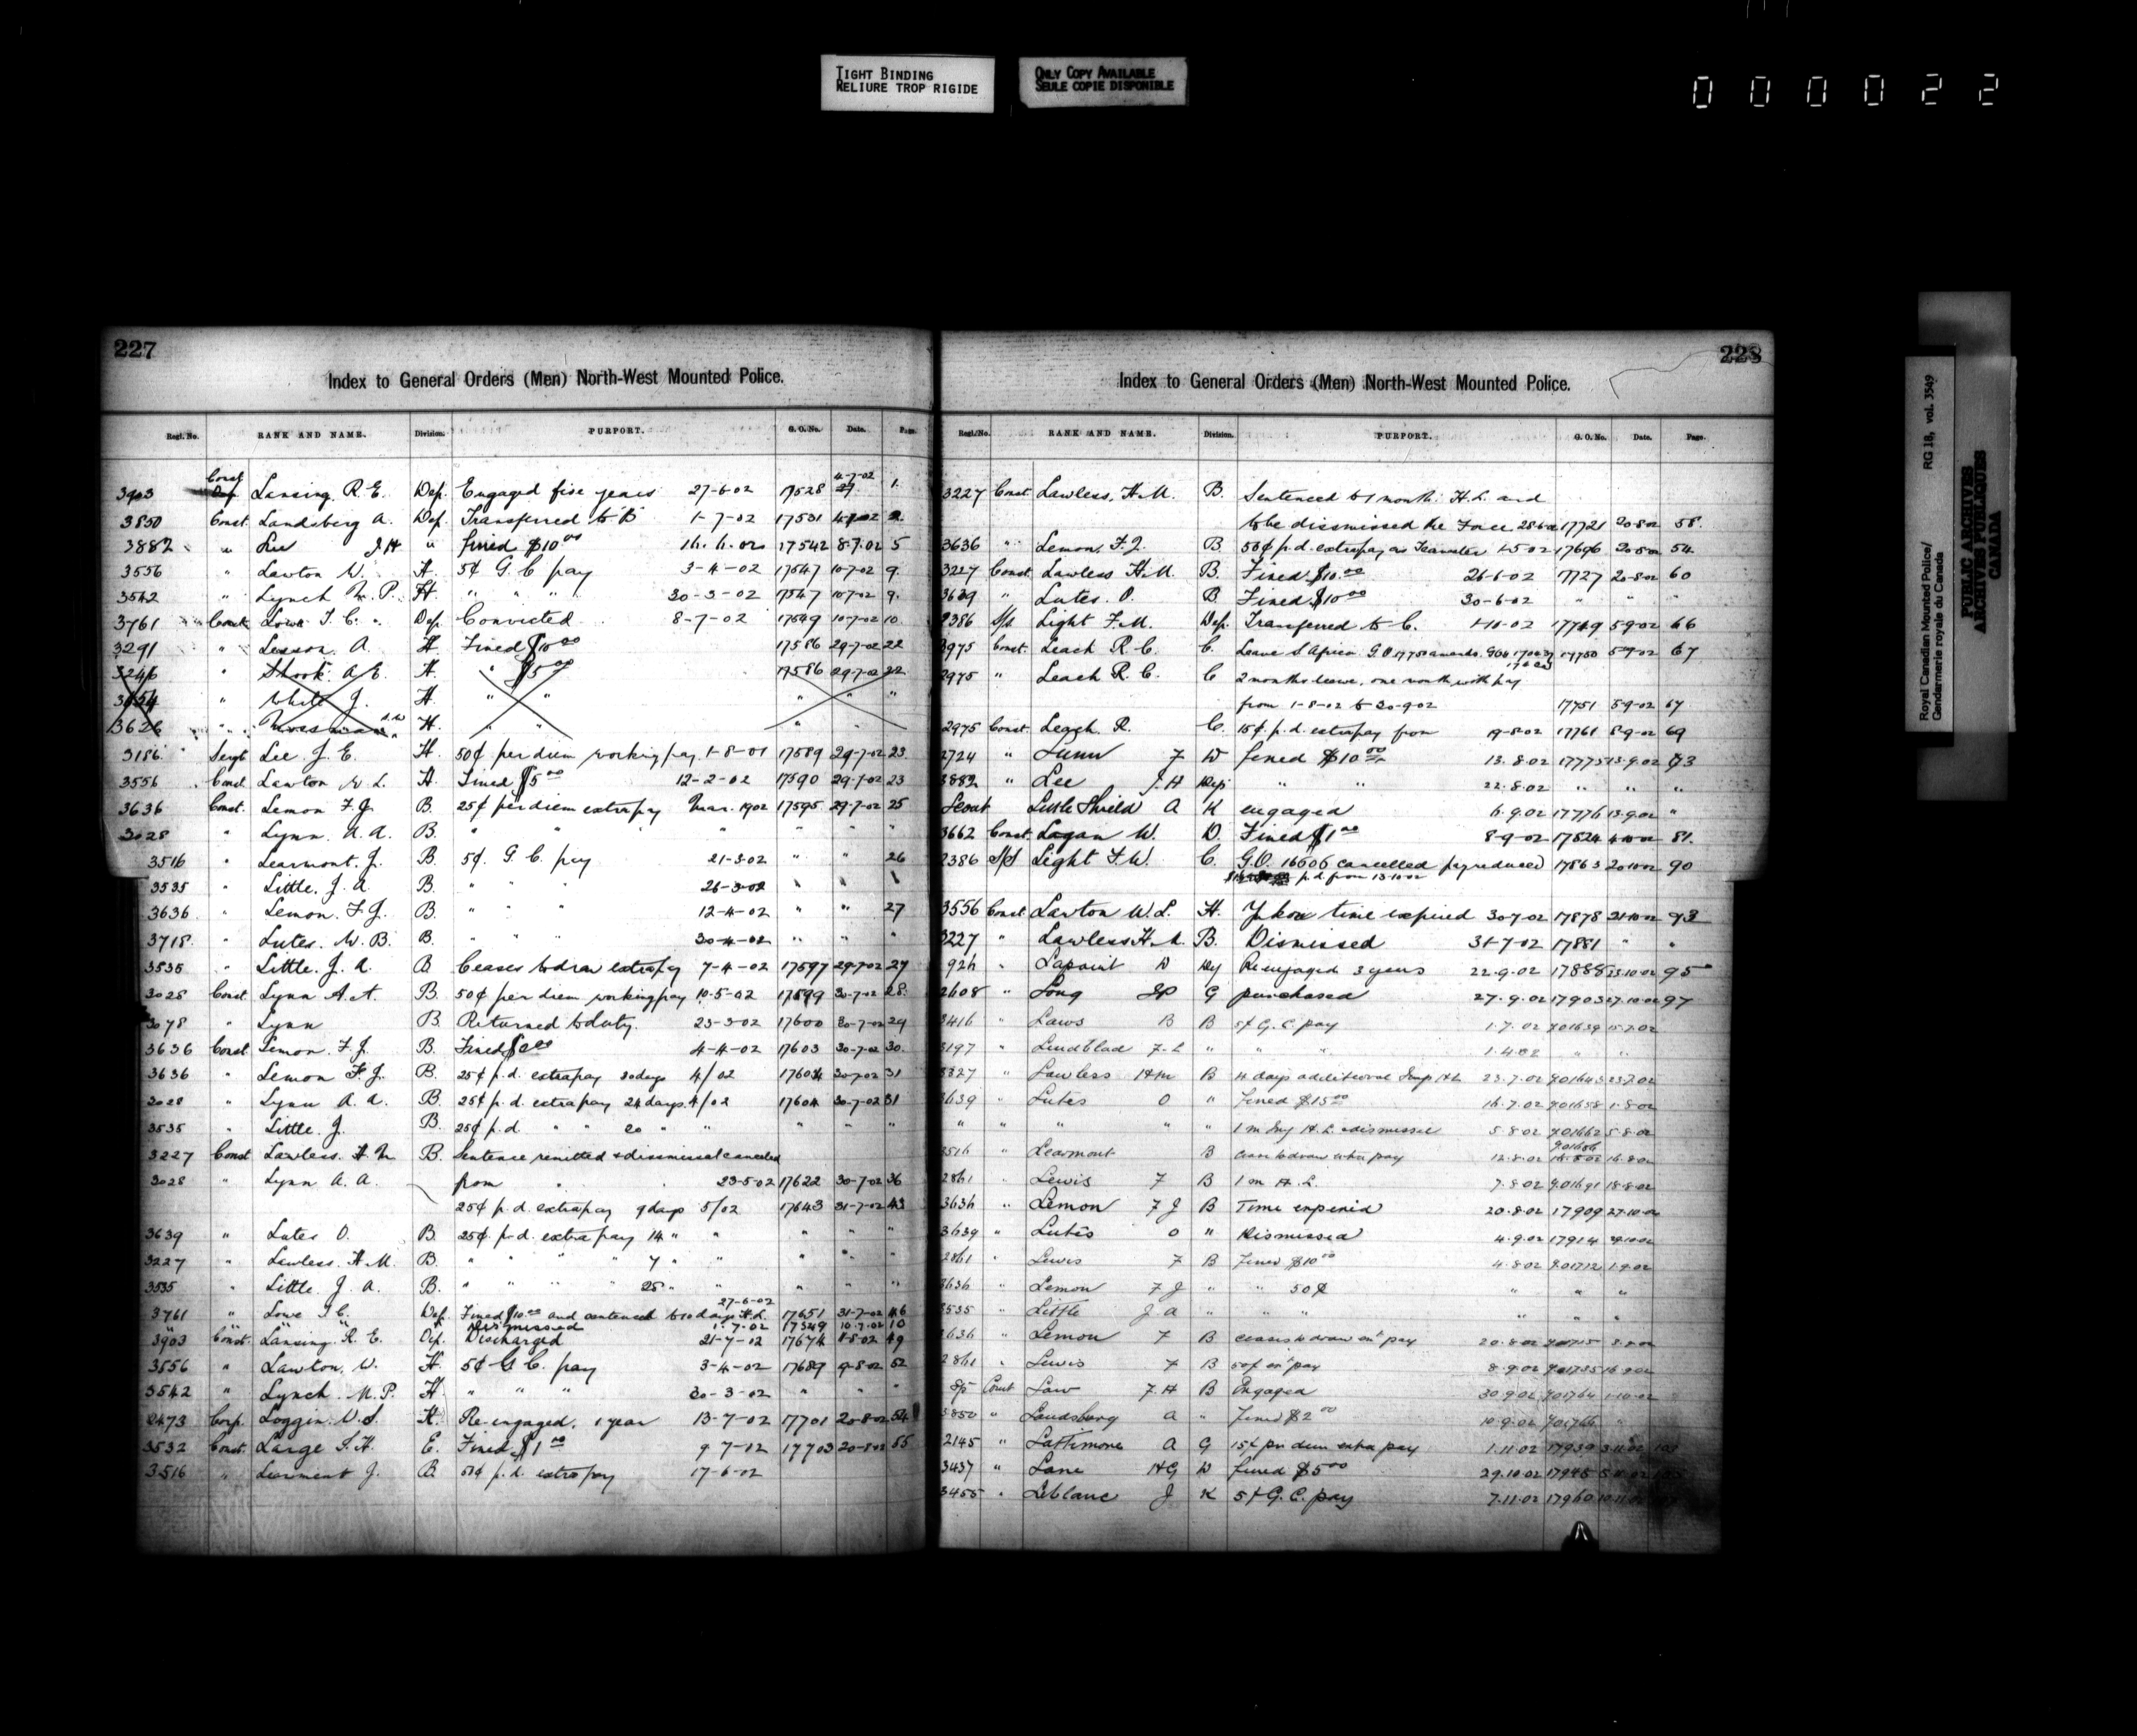 TIGHT BINDING
RELIURE TROP RIGIDE
ONLY COPY AVAILABLE
SEULE COPIE DISPONIBLE
000022
227
Index to General Orders (Men) North-West Mounted Police.
Regl. No. RANK AND NAME. Division. PURPORT. G.O. No. Date. Page.
Const 4-7-02
3903 Lansing, R.E. Dep. Engaged five years 27-6-02 17528 1.
3850 Const. Landsberg A. Dep. Transferred to B 1-7-02 17531 4-7-02 2.
3882 " Lee J H " fined $10 00 17542 8.7.02 5
3556 " Lawton W. H. 5¢ G.C. pay 3-4-02 17547 10-7-02 9.
3542 " Lynch M. P. H. " " " 30-3-02 17547 10-7-02 9.
3761 Const. Lowe T. C. Dep. Convicted 8-7-02 17549 10-7-02 10.
3291 " Lesson. A. H. Fined $10 00 17586 29-7-02 22
3246 " Shook. A.E. H. " $5 00 17586 29-7-02 22.
3654 " White J. H. " " " " "
3626 " H. " " "
3186 Sergt Lee. J. E. H. 50¢ per diem working pay 1-8-01 17589 29-7-02 23
3556 Const Lawton W. L. H. Fined $5 00 12-2-02 17590 29-7-02 23
3636 Const. Lemon F. J. B. 25¢ per diem extra pay Mar. 1902 17595 29-7-02 25
3028 " Lynn. A. A. B. " " " " " "
3516 " Learmont. J. B. 5¢. G. C. pay 21-3-02 " " 26
3535 " Little. J. A B. " " " 26-3-02 " "
3636 " Lemon. F. J. B. " " " 12-4-02 " " 27
3718. " Lutes. W. B. B. " " " 30-4-02 " " "
3535 " Little. J. A. B. Ceases to draw extra pay 7-4-02 17597 29-7-02 27
3028 Const Lynn A. A. B. 50¢ per diem working pay 10-5-02 17599 30-7-02 28.
3078 " Lynn B. Returned to duty. 23-3-02 17600 30-7-02 29
3636 Const Lemon. F. J. B. Fined 4-4-02 17603 30-7-02 30.
3636 " Lemon F. J. B. 25¢ p.d. extra pay 30 days 4/02 17604 30-7-02 31
3028 " Lynn A. A. B. 25¢ p.d. extra pay 24 days. 4/02 17604 30-7-02 31
3535 " Little. J. B. 25¢ p.d. " " 20 " " " " "
3227 Const Lawless. H. M B. Sentence remitted & dismissal canceled
3028 " Lynn A. A. from 23-5-02 17622 30-7-02 36
25¢ p.d. extra pay 9 days 5/02 17643 31-7-02 43
3639 " Lutes O. B. 25¢. p.d. extra pay 14 " " " " "
3227 " Lawless. H. M. B. " " " " 7 " " " "
3535 " Little. J. A. B. " " " " 25 " " " " "
27-6-02
3761 " Lowe T C. Dep. Fined $10 00 and sentenced to 10 days H.L. 17651 31-7-02 46
" " " Dismissed 1.7.02 17549 10.7.02 10
3903 Const. Lansing, R. E. Dep. Discharged 21-7-02 17674 8-02 49
3556 " Lawton, W. H. 5¢ G. C. pay 3-4-02 17689 9-8-02 52
3542 " Lynch. M. P. H. " " " 30-3-02 " " "
2473 Corp. Loggin. V. S. H. Re-engaged. 1 year 13-7-02 17701 20-8-02 54
3532 Const. Large S. H. E. Fined $1 00 9-7-02 17703 20-8-02 55
3516 " Learmont J. B. 50¢ p.d. extra pay 17-6-02
228
Index to General Orders (Men) North-West Mounted Police.
Regl. No. RANK AND NAME. Division. PURPORT. G.O. No. Date. Page.
3227 Const Lawless, H.M. B. Sentenced to 1 month. H.L. and
to be dismissed the Force 28-6-02 17721 20-8-02 58.
3636 " Lemon, F. J. B. 50¢ p.d. extra pay as Teamster 1-5-02 17696 20-8-02 54.
3227 Const Lawless H.M. B. Fined $10.00 26-6-02 17727 20-8-02 60
3639 " Lutes. O. B. Fined $10 00 30-6-02 " " "
2386 S/S Light F.M. Dep. Transferred to C. 17749 5-9-02 66
2975 Const. Leach R. C. C. Leave S. Africa. 17750 5-9-02 67
2975 " Leach R. C. C 2 months leave, one month with pay
from 1-8-02 to 30-9-02 17751 5-9-02 67
2975 Const. Leach, R. C. 15¢ p.d. extra pay from 19-8-02 17761 8-9-02 69
2724 " Lunn F D fined $10 00 13.8.02 17775 13.9.02 73
3882 " Lee J. H Dep " " 22.8.02 " " "
Scout Little Shield A K engaged 6.9.02 17776 13.9.02 "
3662 Const. Logan W. D. Fined $1 00 8-9-02 17824 4-10-02 81.
2386 S/S Light F.W. C. G.O. 16606 cancelled pay reduced 17863 20-10-02 90
p.d. from 13-10-02
3556 Const. Lawton W. L. H. Yukon time expired 30-7-02 17878 21-10-02 93
3227 " Lawless H. M. B. Dismissed 31-7-02 17881 " "
924 " Lapoint D Dep Re engaged 3 years 22.9.02 17888 23.10.02 95
2608 " Long G purchased 27.9.02 17903 27.10.02 97
3416 " Laws B B 5¢ G. C. pay 1.7.02 GO1639 15.7.02
3197 " Lindblad F. L " " " 1.4.02 " "
3227 " Lawless H M B 14 days additional Imp H L 23.7.02 GO1645 23.7.02
3639 " Lutes O " fined $15 00 16.7.02 GO1658 1.8.02
" " " " " 1 m Imp H. L. & dismissal 5.8.02 GO1662 5.8.02
3516 " Learmont B cease to draw extra pay 12.8.02 GO1686 16.8.02
2861 " Lewis F B 1 m H. L. 7.8.02 GO1691 18.8.02
3636 " Lemon F J B Time expired 20.8.02 17909 27.10.02
3639 " Lutes O " Dismissed 4.9.02 17914 29.10.02
2861 " Lewis F B Fined $10 00 4.8.02 GO1712 1.9.02
3636 " Lemon F J " " 50¢ " " "
3535 " Little J A " " " " " "
3636 " Lemon F B ceases to draw ext pay 20.8.02 GO1715
2861 " Lewis F B 50¢ ext pay 8.9.02 GO1735 16.9.02
Sp Const Law F. H B Engaged 30.9.02 GO1764 1.10.02
3850 " Landsberg A " Fined $2 00 10.9.02 GO1766 "
2145 " Lattimore A G 15¢ per diem extra pay 1.11.02 17939
3437 " Lane H G D fined $5 00 29.10.02 17945
3455 " Leblanc J K 5¢ G. C. pay 7.11.02 17960
Royal Canadian Mounted Police/
Gendarmerie royale du Canada
RG 18, vol. 3549
PUBLIC ARCHIVES
ARCHIVES PUBLIQUES
CANADA